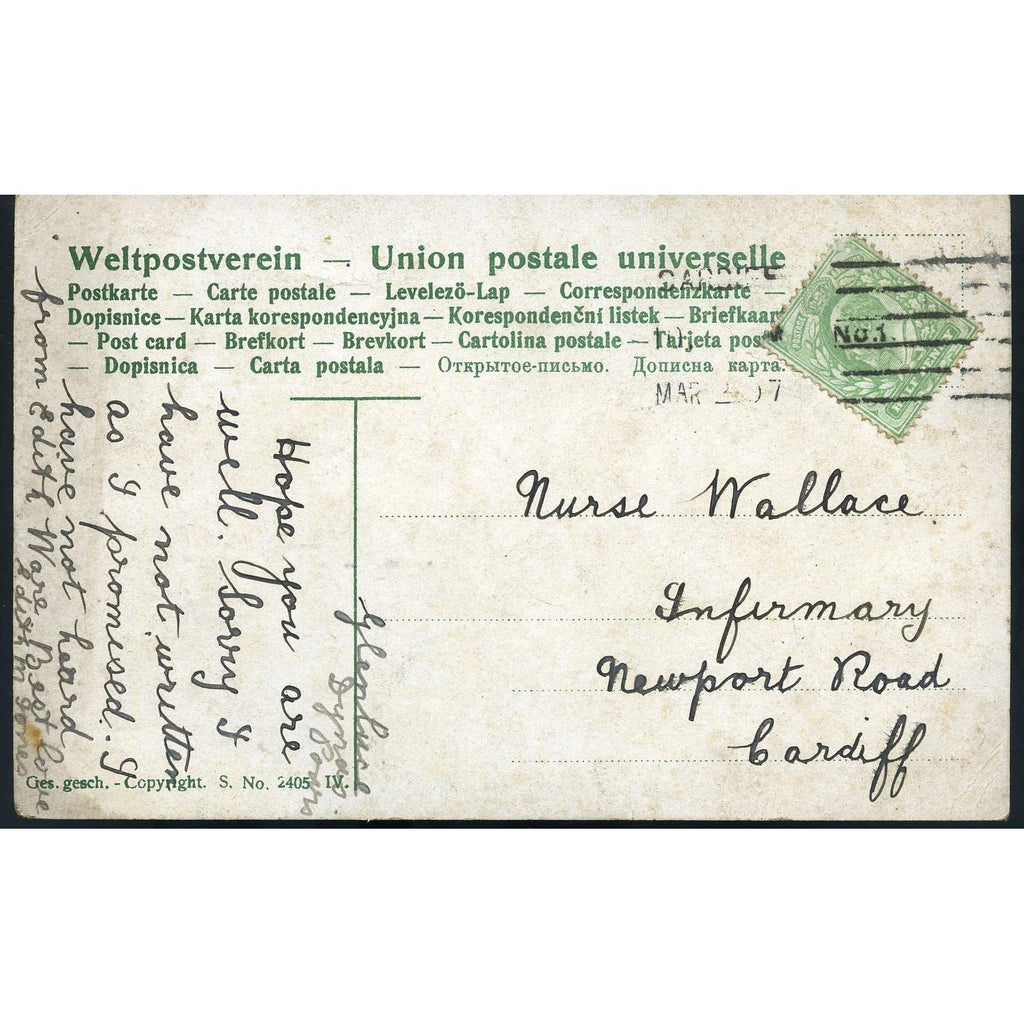 Weltpostverein — Union postale universelle
Postkarte — Carte postale — Levelező-Lap — Correspondenzkarte —
Dopisnice — Karta korespondencyjna — Korespondenční listek — Briefkaar
— Post card — Brefkort — Brevkort — Cartolina postale — Tarjeta pos
— Dopisnica — Carta postala — Открытое-письмо. Дописна карта.
MAR 07
No.1.
Nurse Wallace
Infirmary
Newport Road
Cardiff
Hope you are
well. Sorry I
have not written
as I promised. I
have not heard
from Edith Ware Best love
Edith M Jones
Ges. gesch. - Copyright. S. No. 2405 IV.